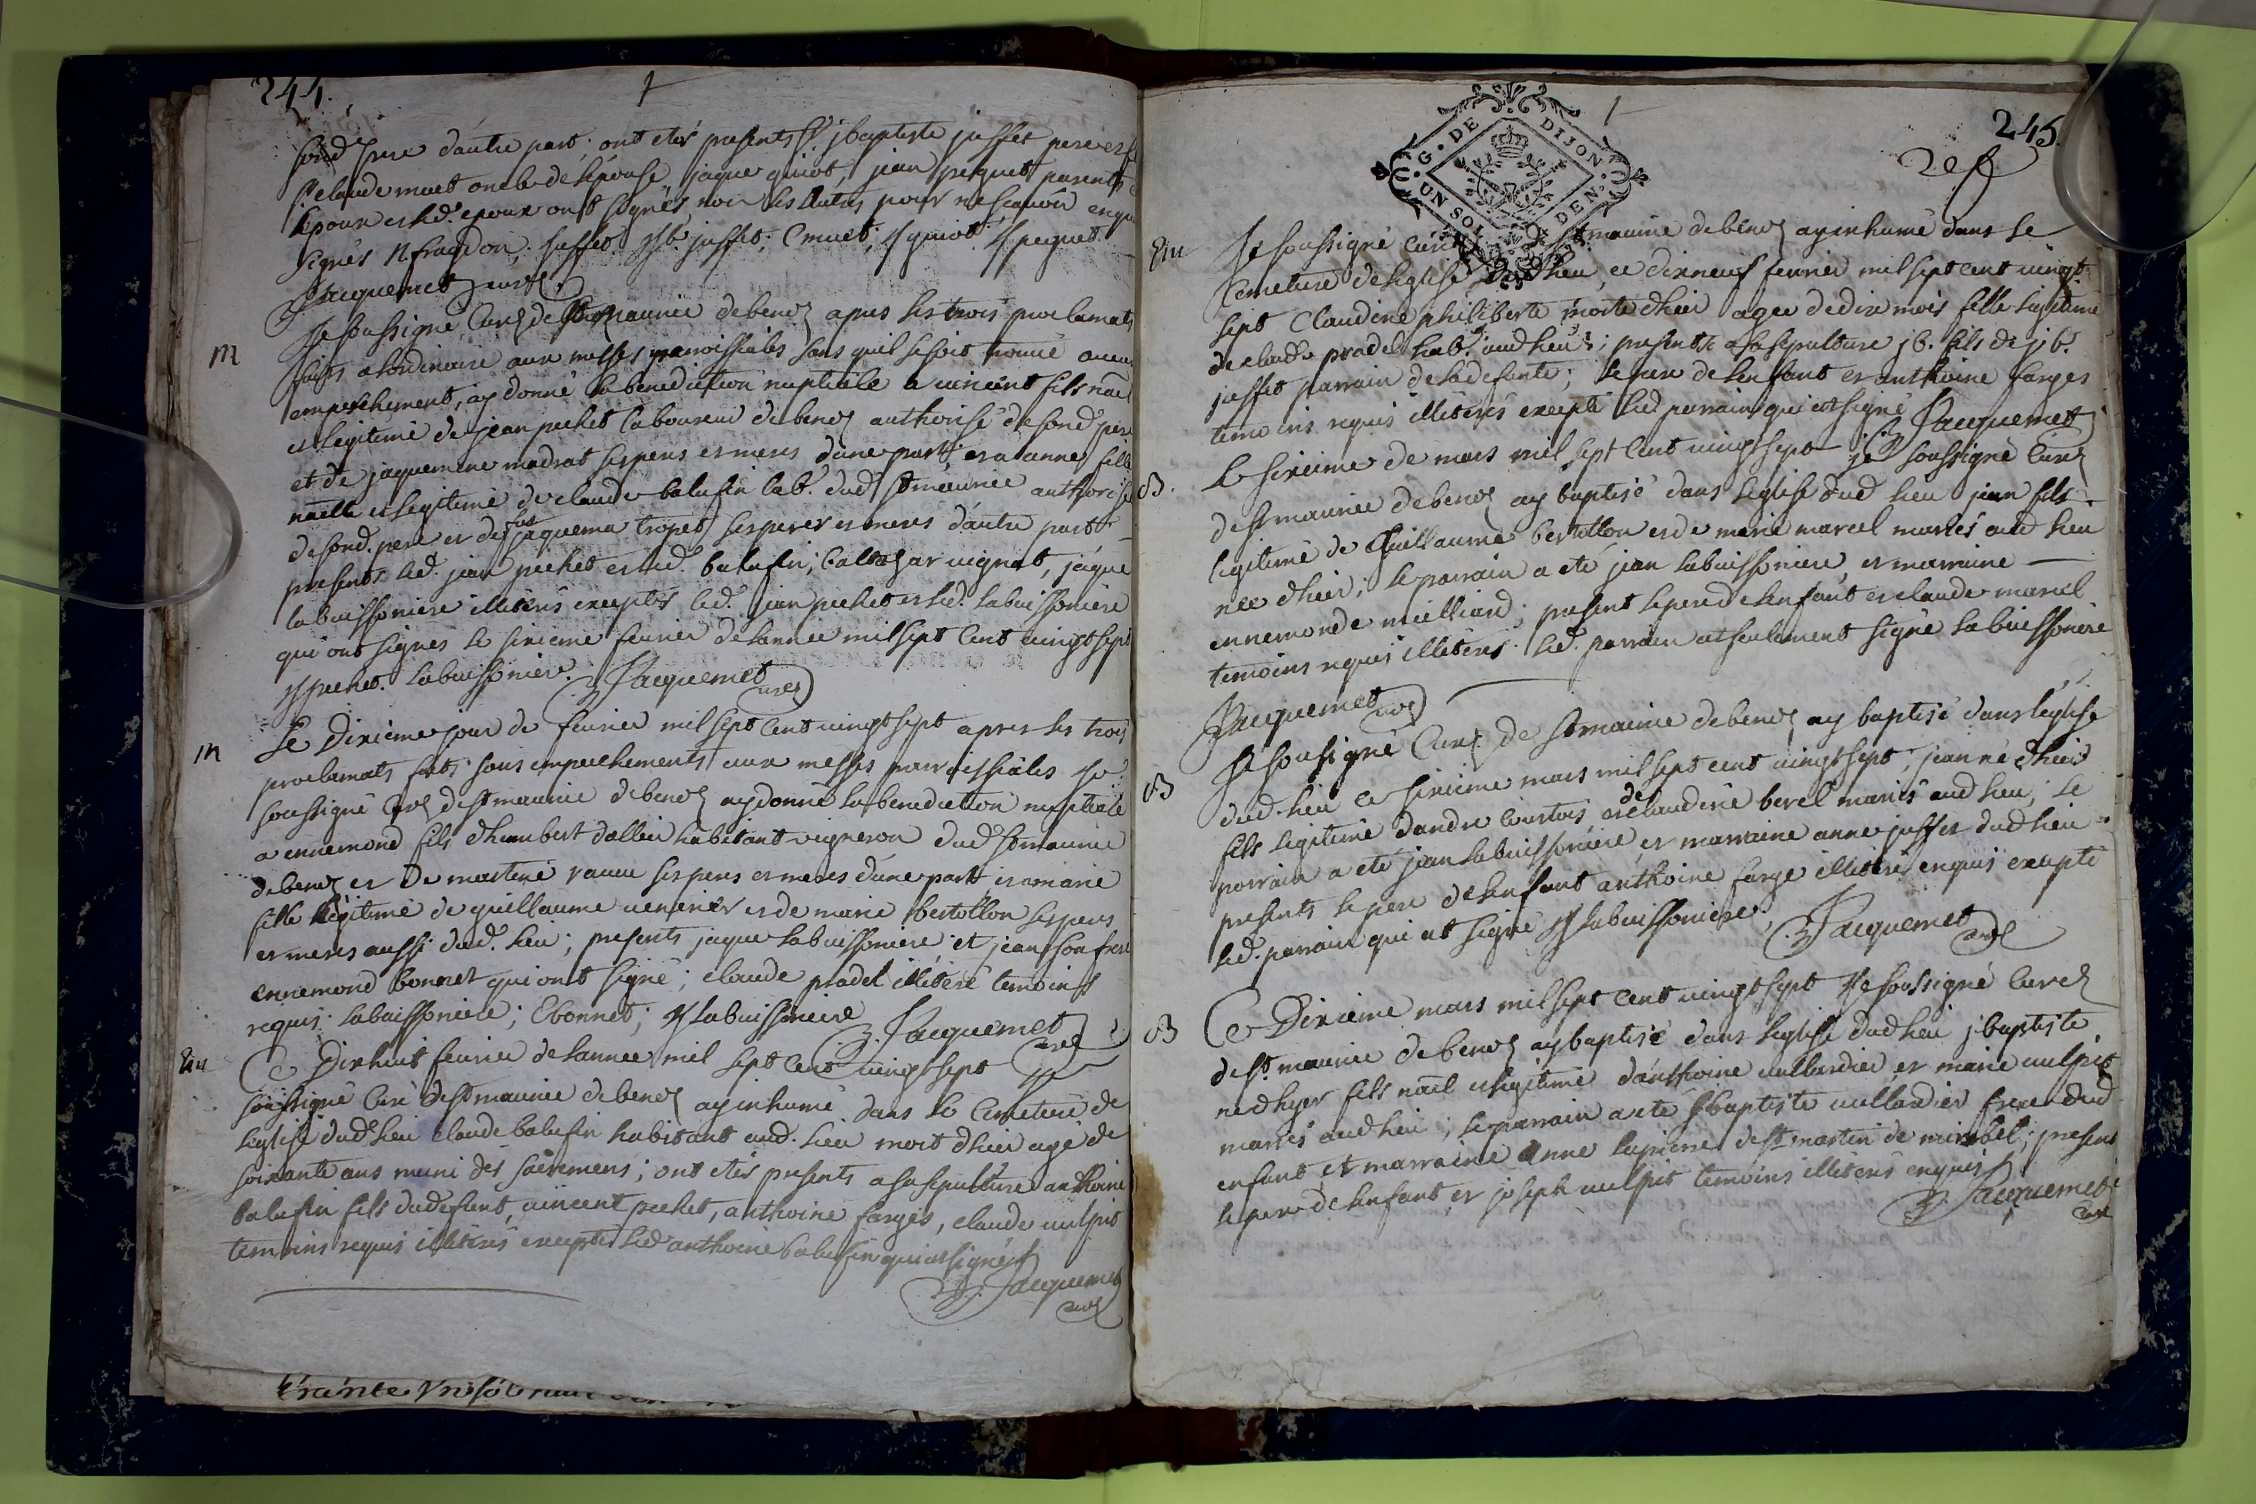 244.
sond. pere d'autre part; ont etés presents Sr. jbaptiste juffet pere et
Sr. claude muet oncle de l'epouse, jaque guiot, jean peguet parents
l'epoux et lad. epoux ont signés, non les autres pour ne scavoir enquis
signés N fragdon. juffet. JB. juffet; C muet; J guiot; J peguet.
Jacquemet curé
M
Je soussigné Curé de St maurice de benoz apres les trois proclamats
faits a l'ordinaire aux messes parroissiales sans qu'il se soit trouvé aucun
empeschement, ay donné la benediction nuptiale a vincent fils nael
et legitime de jean pechet laboureur de benoz authorisé de sond. pere
et de jaquemine madrat ses peres et meres d'une part; et a anne fille
naelle et legitime de claude balufin lab. dud. St maurice authorisé
de sond. pere et de fut jaquema tropet ses peres et meres d'autre part
presents led. jean pechet et led. balufin; baltazar vignat, jaque
labuissoniere illiterés exceptés led. jean pechet et led. labuissoniere
qui ont signés le sixieme fevrier de l'année mil sept cent vingt sept
J pechet. labuissoniere. Jacquemet curé
M
Le Dixieme jour de fevrier mil sept cent vingt sept apres les trois
proclamats faits sans empechements aux messes parroissiales Je
soussigné Curé de St maurice de benoz ay donné la benediction nuptiale
a ennemond fils d'humbert dallier habitant vigneron dud. St maurice
de benoz et de martine ravier ses peres et meres d'une part, et a marie
fille legitime de guillaume venerier et de marie bertollon ses peres
et meres aussi dud. lieu; presents jaque labuissoniere; et jean son frere
ennemond bonnet qui ont signé; claude pradel illiteré temoins
requis. labuissoniere; E bonnet; J labuissoniere
Jacquemet curé
Em
Ce Dixhuit fevrier de l'année mil sept cent vingt sept Je
soussigné Curé de St maurice de benoz ay inhumé dans le Cemetere de
l'eglise dud. lieu claude balufin habitant aud. lieu mort d'hier agé de
soixante ans muni des sacremens; ont etés presents a sa sepulture anthoine
balufin fils du defunt, vincent pechet, anthoine farges, claude vulpit
temoins requis illiterés excepté led. anthoine balufin qui a signé
Jacquemet
curé
trante
245.
G. DE DIJON
UN SOL DEN.
Em
Je soussigné curé de St maurice de benoz ay inhumé dans le
Cemetere de l'eglise dud. lieu, ce dixneuf fevrier mil sept cent vingt
sept Claudine philiberte morte d'hier agée de dix mois fille legitime
de claude pradel hab. aud. lieu; presents a sa sepulture jb. fils de jb.
juffet parrain de la defunte; le pere de l'enfant et anthoine farges
temoins requis illiterés excepté led. parrain qui at signé Jacquemet
B.
Le sixieme de mars mil sept cent vingt sept je soussigné Curé
de St maurice de benoz ay baptisé dans l'eglise dud. lieu jean fils
legitime de Guillaume bertollon et de marie marcel mariés aud. lieu
née d'hier; le parrain a eté jean labuissoniere et marraine
ennemonde milliard; present le pere de l'enfant et claude marcel
temoins requis illiterés. led. parrain at seulement signé labuissoniere
Jacquemet curé
B
Je soussigné Curé de St maurice de benoz ay baptisé dans l'eglise
dud. lieu ce sixieme mars mil sept cent vingt sept; jean né d'hier
fils legitime d'andre Courtois et de claudine berel mariés aud. lieu; le
parrain a eté jean labuissoniere, et marraine anne juffet dud. lieu
presents le pere de l'enfant anthoine farge illiterés enquis excepté
led. parrain qui at signé J labuissoniere. Jacquemet
curé
B
Ce Dixieme mars mil sept cent vingt sept Je soussigné Curé
de St. maurice de benoz ay baptisé dans l'eglise dud. lieu jbaptiste
né d'hyer fils nael et legitime d'anthoine vullardier et marie vulpit
mariés aud. lieu; le parrain a eté Jbaptiste vullardier frere dud.
enfant et marraine anne lapierre de St martin de miribel; presens
le pere de l'enfant et joseph vulpit temoins illiterés enquis
Jacquemet
curé